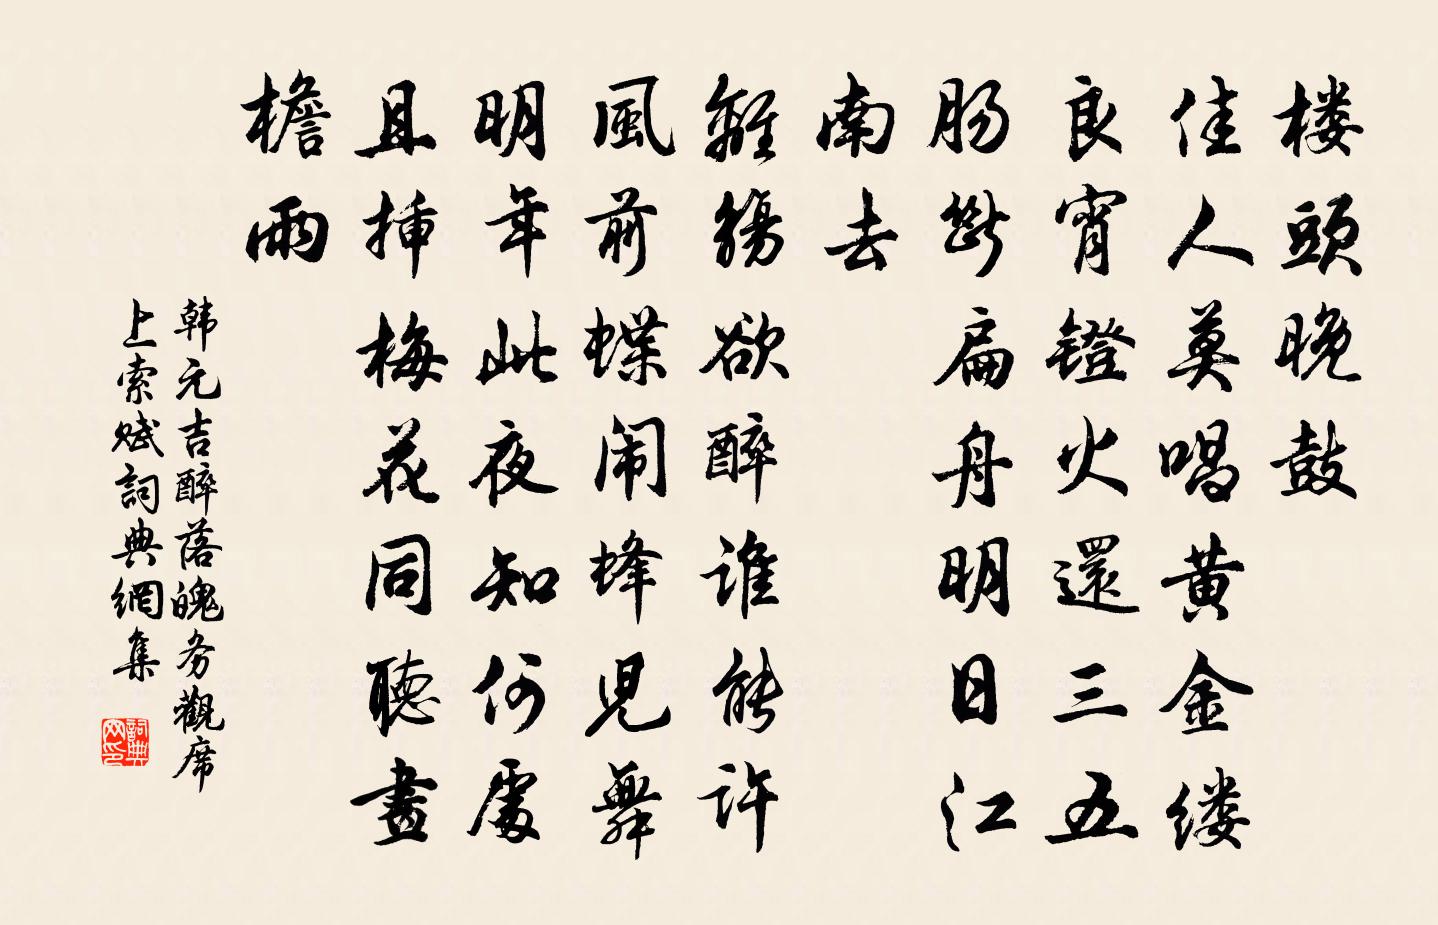 楼頭晚鼓
佳人莫唱黄金缕
良宵镫火還三五
肠斷扁舟明日江
南去
離觴欲醉谁能许
風前蝶闹蜂児舞
明年此夜知何處
且揷梅花同聽畫
檐雨
韩元吉醉落魄务觀席
上索赋詞典網集
詞典